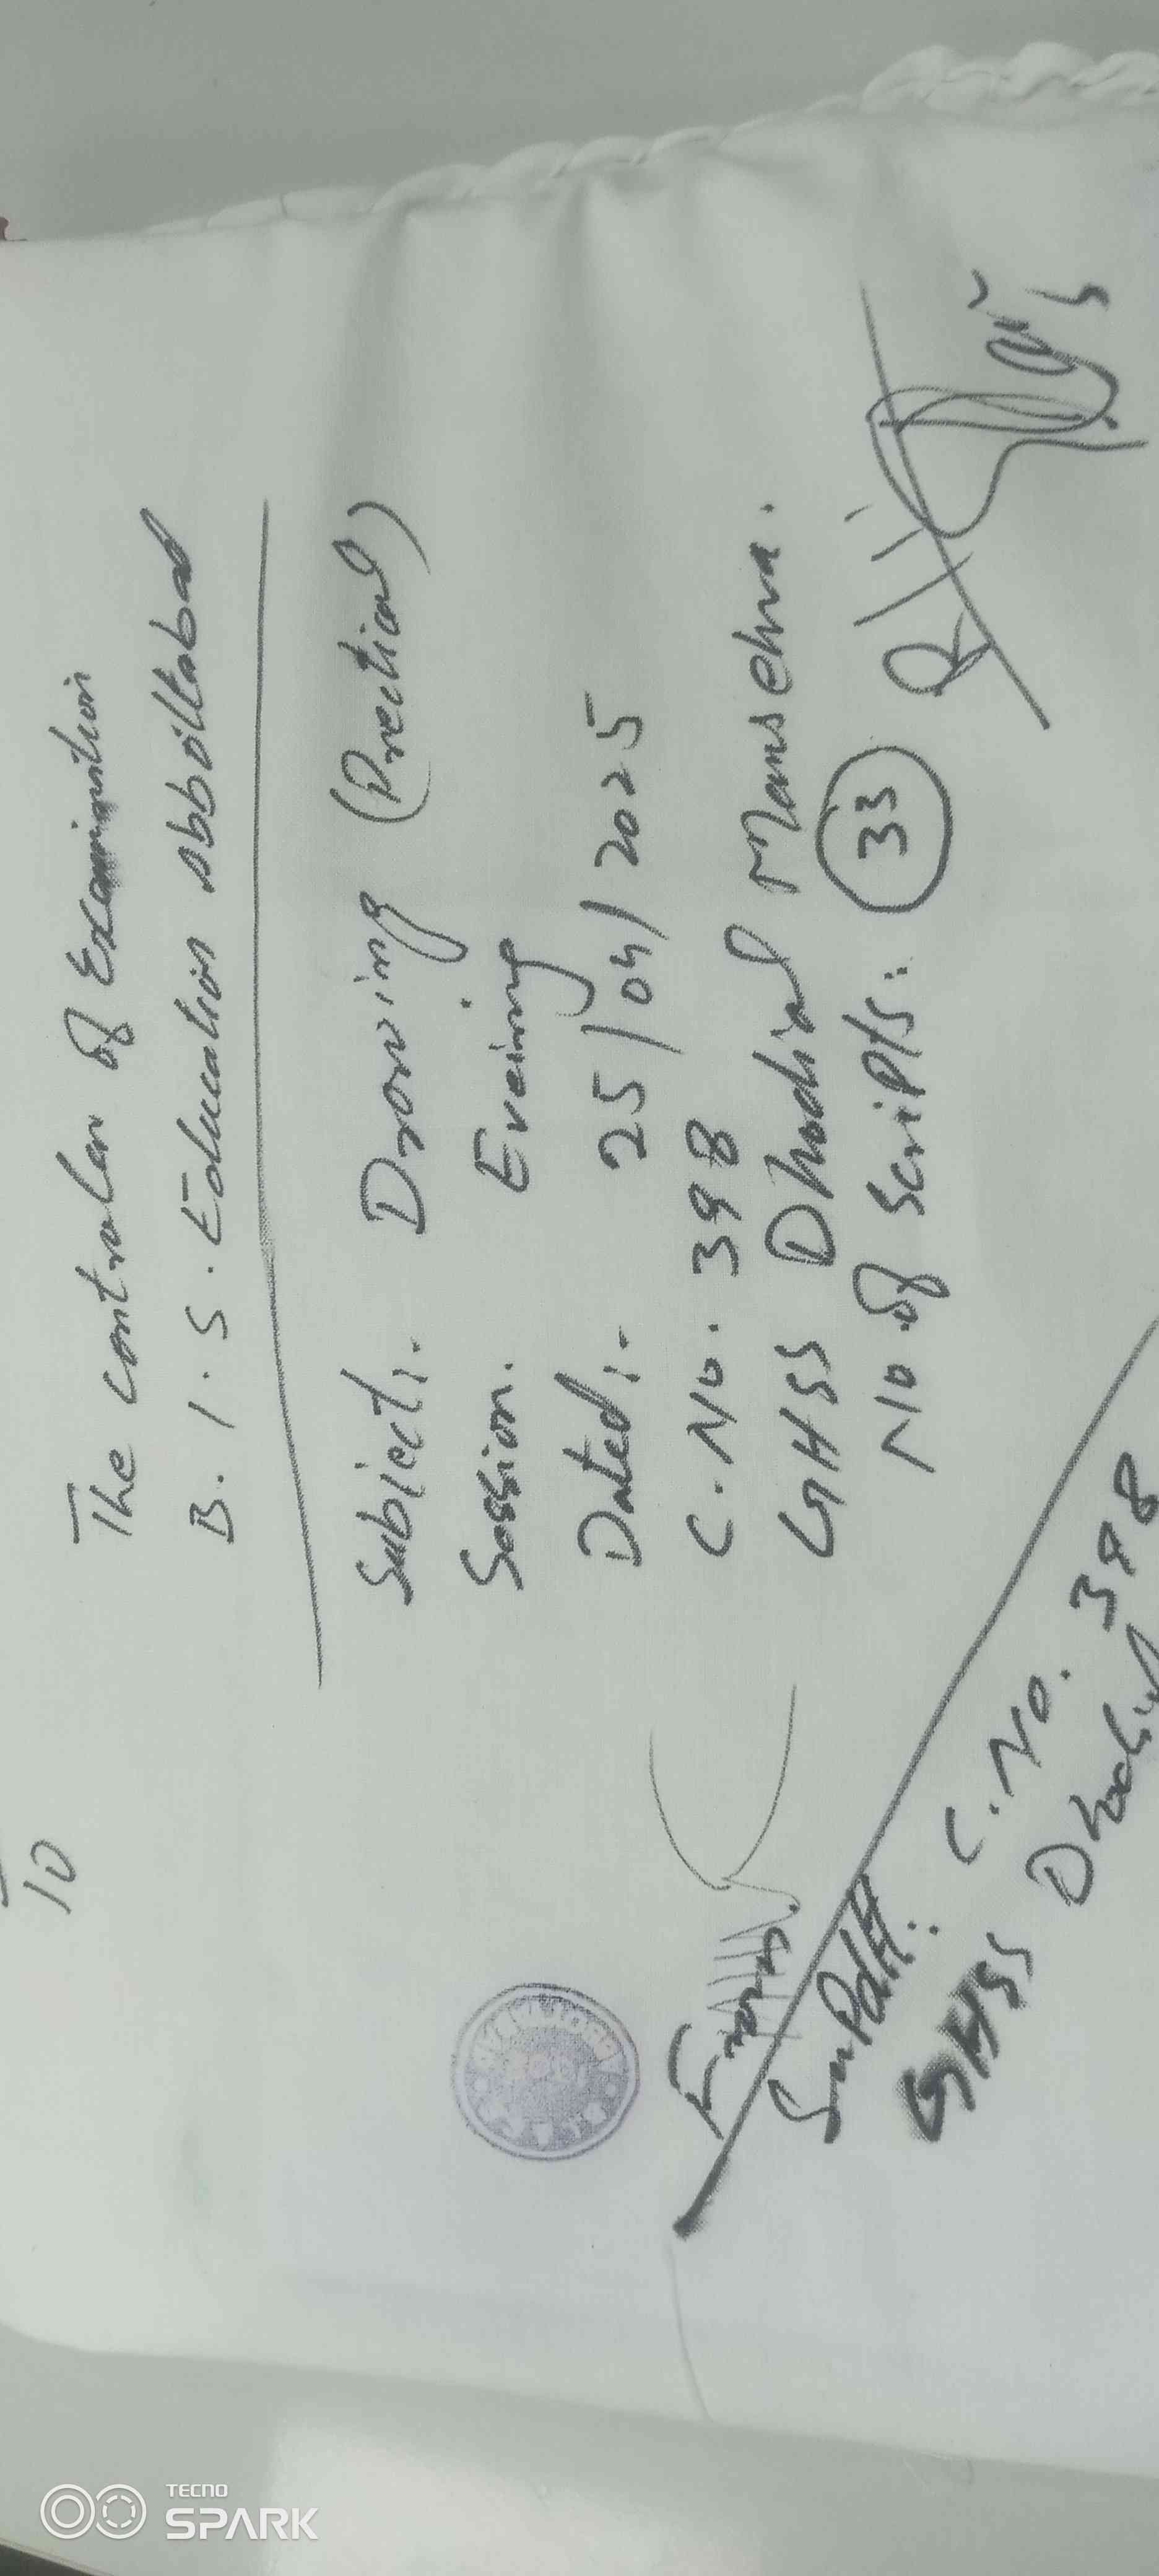 To
The controler of Examination
B. I. S. Education abbottabad
Subject:. Drowing (Prectical)
Session. Eveinng
Dated:- 25/04/2025
C. No. 398
GHSS Dhodial Mansehra.
No. of Scripts: 33
From.
Supdtt:
C. No. 398
GHSS Dhodial
TECNO
SPARK